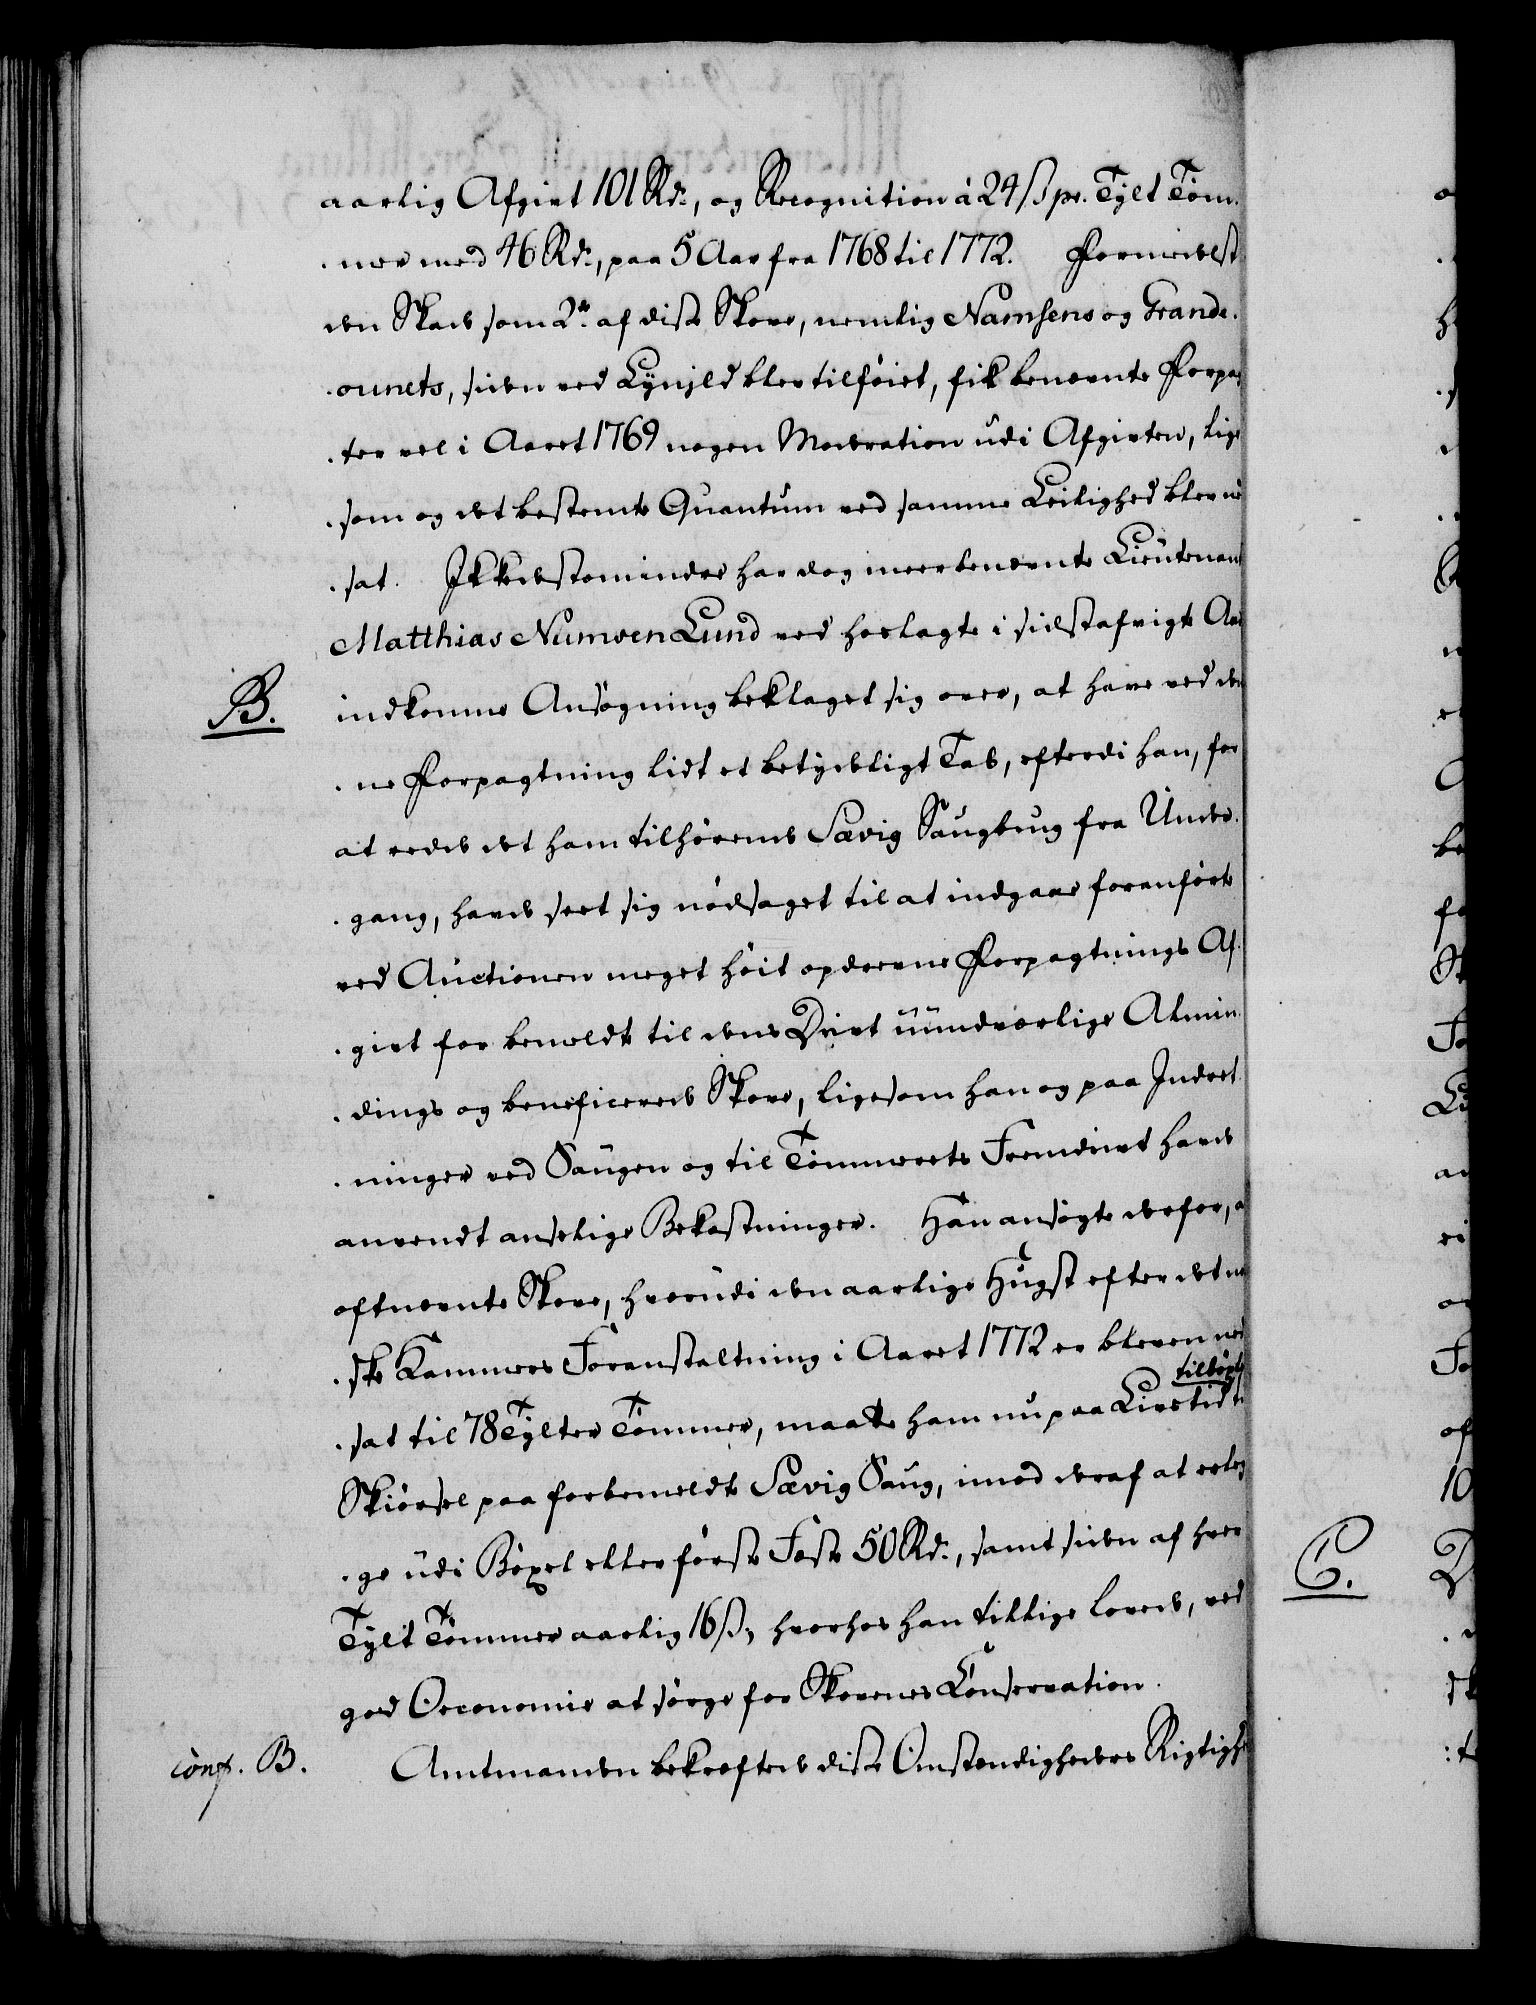 aarlig Afgivt 101 Rd:, og Recognition à 24 ß pr. Tylt Töm-
-mer med 46 Rd:, paa 5 Aar fra 1768 til 1772. Formedelst
den Skade som 2de af disse Skove, nemlig Namsens og Grande-
-ounets, siden ved Lynild blev tilföiet, fik benevnte Forpag
-ter vel i Aaret 1769 nogen Moderation udi Afgivten, lige
-som og det bestemte Quantum ved samme Leilighed blev ned
-sat. Ikkedestomindre har dog meerbenevnte Lieutenant
Matthias Numsen Lund ved hoslagte i sidstafvigte Aar
B. indkomne Ansögning beklaget sig over, at have ved den
-ne Forpagtning lidt et betydeligt Tab, efterdi han, for
at redde det ham tilhörende Sævig Saugbrug fra Under-
-gang, havde seet sig nödsaget til at indgaae foranförte
ved Auctionen meget höit opdrevne Forpagtnings Af-
-givt for bemeldte til dens Drivt uundværlige Almin-
-dings og beneficerede Skove, ligesom han og paa Indret-
-ninger ved Saugen og til Tömmerets Fremdrivt havde
anvendt anselige Bekostninger. Han ansögte derfor, at
oftnevnte Skove, hvorudi den aarlige Hugst efter det no
-ske Kammers Foranstaltning i Aaret 1772 er bleven ned
tilböxles
-sat til 78 Tylter Tömmer, maatte ham nu paa Livstid til
Skiörsel paa forbemeldte Sævig Saug, imod deraf at erleg
-ge udi Böxel eller förste Fæste 50 Rd:, samt siden af hver
Tylt Tömmer aarlig 16 ß, hvorhos han tillige lovede, ved
god Oeconomie at sörge for Skovenes Conservation.
conf. B. Amtmanden bekræftede disse Omstændigheders Rigtighe
C.